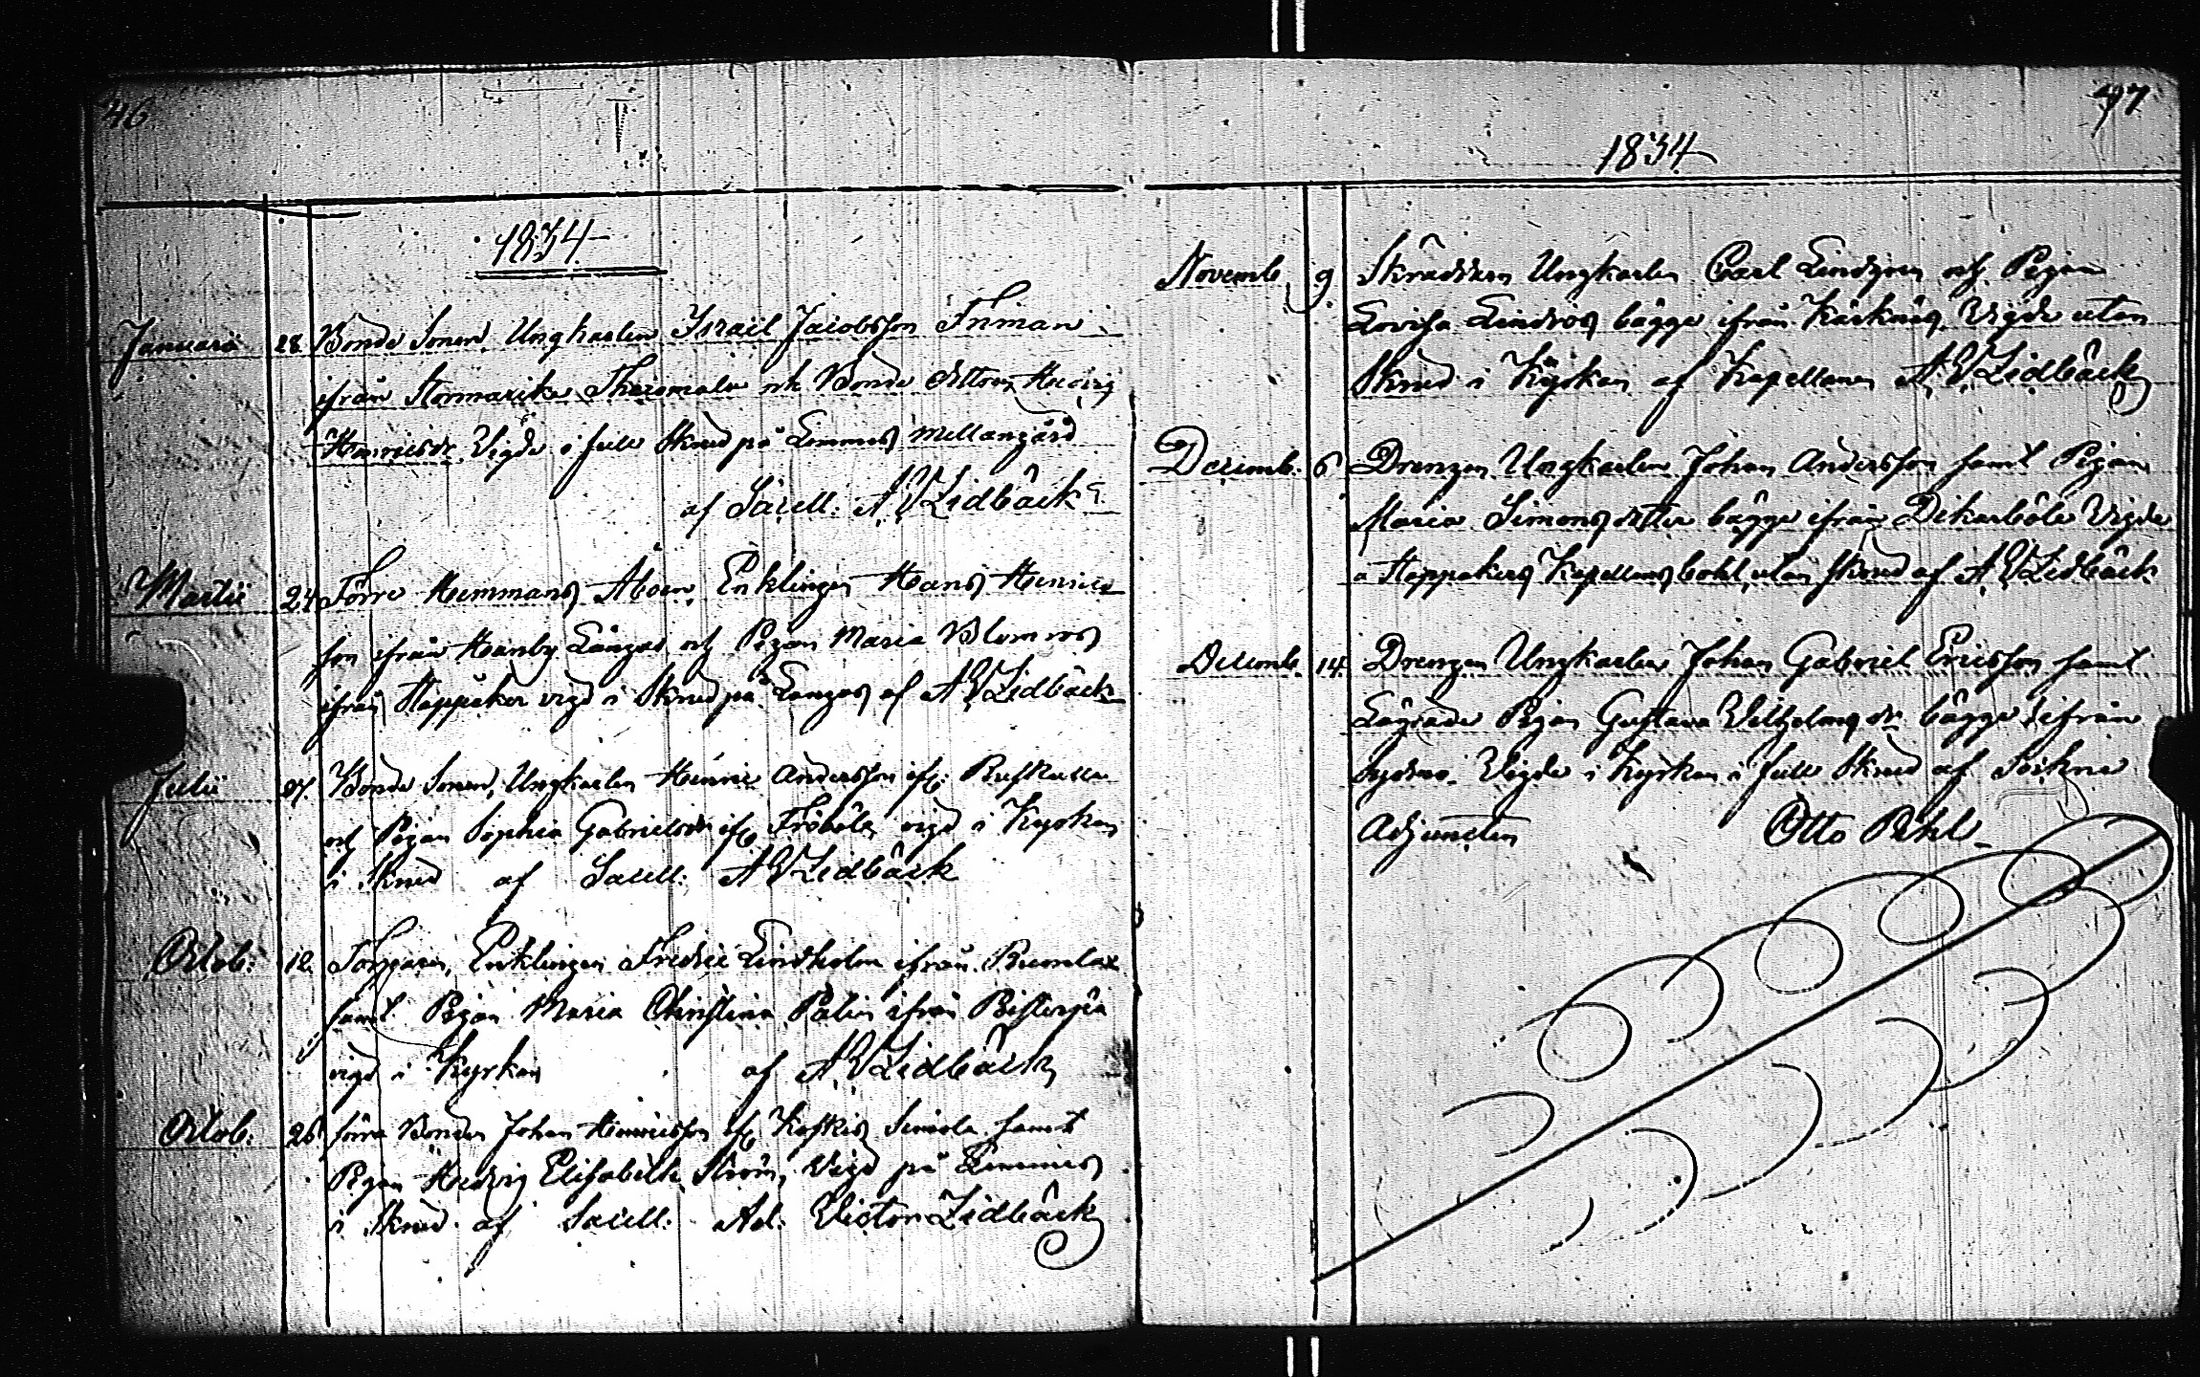 46
1834
Januarii 28. Bonde Sonen, Ungkarlen Israil Jacobsson Friman
ifrån Stormarike och Bonde dottren Hedvig
Henricsdr. Vigde i full Skrud på Limnes Mellangård
af Sacell: A V Zidbäck
Martii 24 Förre Hemmans Åboen, Enklingen Hans Henrics
son ifrån Hanby Långas och Pigan Maria Blomros
ifrån Stappåker vigd i Skrud på Langas af A V Zidbäck
Julii Bonde Sonen, Ungkarlen Henric Andersson ifr:
och Pigan Sophia Gabrielsdr ifr Fröböle vigd i Kyrkan
i Skrud af Sacell: A V Zidbäck
Octob: 12. Torparen, Enklingen Fredric Lindholm ifrån Rumlax
samt Pigan Maria Christina Palin ifrån
vigd i Kyrkan af A V Zidbäck
Octob: 26 förra Bonden Johan Henricsson ifr Koskis Simola samt
Pigan Hedvig Elisabeth Ström, Vigd på Limnes
i Skrud af Sacell: Ad: Victor Zidbäck
47
1834
Novemb. 9 Skräddaren Ungkarlen Carl Lindgren och Pigan
Lovisa Lindros bägge ifrån Kärknäs, Vigde utan
Skrud i Kyrkan af Kapellanen A V Zidbäck
Decemb. 6 Drengen Ungkarlen Johan Andersson samt Pigan
Maria Simonsdotter bägge ifrån Dikarböle Vigde
å Stappåkers Kapellans bohl utan Skrud af A V Zidbäck
Decemb. 14. Drengen Ungkarlen Johan Gabriel Ericsson samt
Lägrade Pigan Gustava Vilhelmsdr. bägge ifrån
Vigde i Kyrkan i full Skrud af Sockne
Adjuncten Otto Pehl